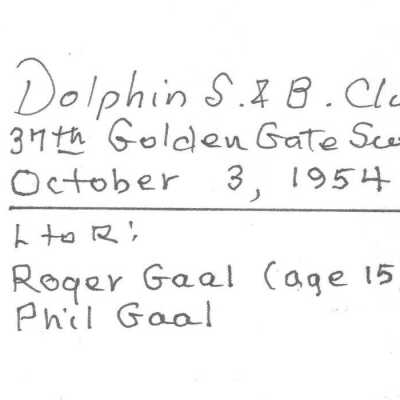 Dolphin S. & B. Clu
37th Golden Gate Sw
October 3, 1954
L to R:
Roger Gaal (age 15
Phil Gaal